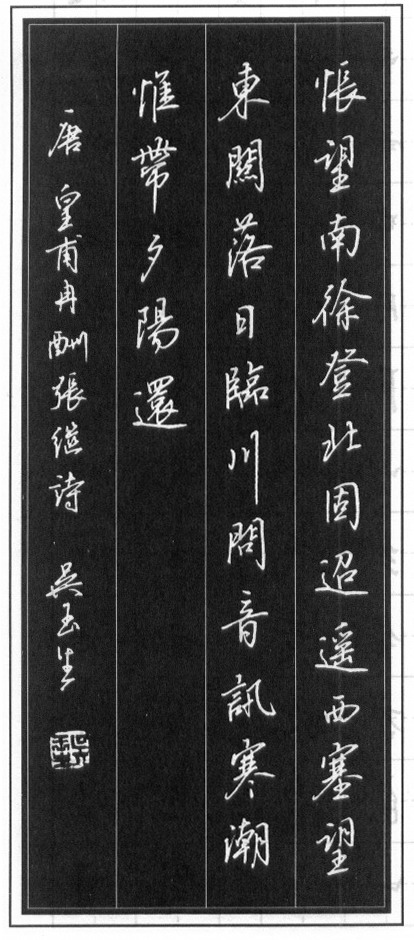 悵望南徐登北固迢遥西塞望
東關落日臨川問音訊寒潮
惟帶夕陽還
唐 皇甫冉酬張继詩 吳玉生